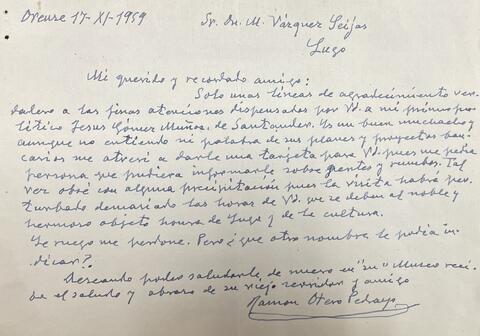 Orense 17-XI-1959
Sr. Dn. M. Vázquez Seijas
Lugo
Mi querido y recordado amigo:
Solo unas líneas de agradecimiento ver-
dadero a las finas atenciones dispensadas por Vd. a mi primo po-
lítico Jesus Gómez Muñoz, de Santander. Es un buen muchacho y
aunque no entiendo ni palabra de sus planes y proyectos ban-
carios me atreví a darle una tarjeta para Vd. pues me pedía
persona que pudiera informarle sobre gentes y rumbos. Tal
vez obré con alguna precipitación pues la visita habrá per-
turbado demasiado las horas de Vd. que se deben al noble y
hermoso objeto honra de Lugo y de la cultura.
Le ruego me perdone. Pero ¿que otro nombre le podía in-
dicar?
Deseando poder saludarle de nuevo en "su" Museo reci-
ba el saludo y abrazo de su viejo servidor y amigo
Ramon Otero Pedrayo